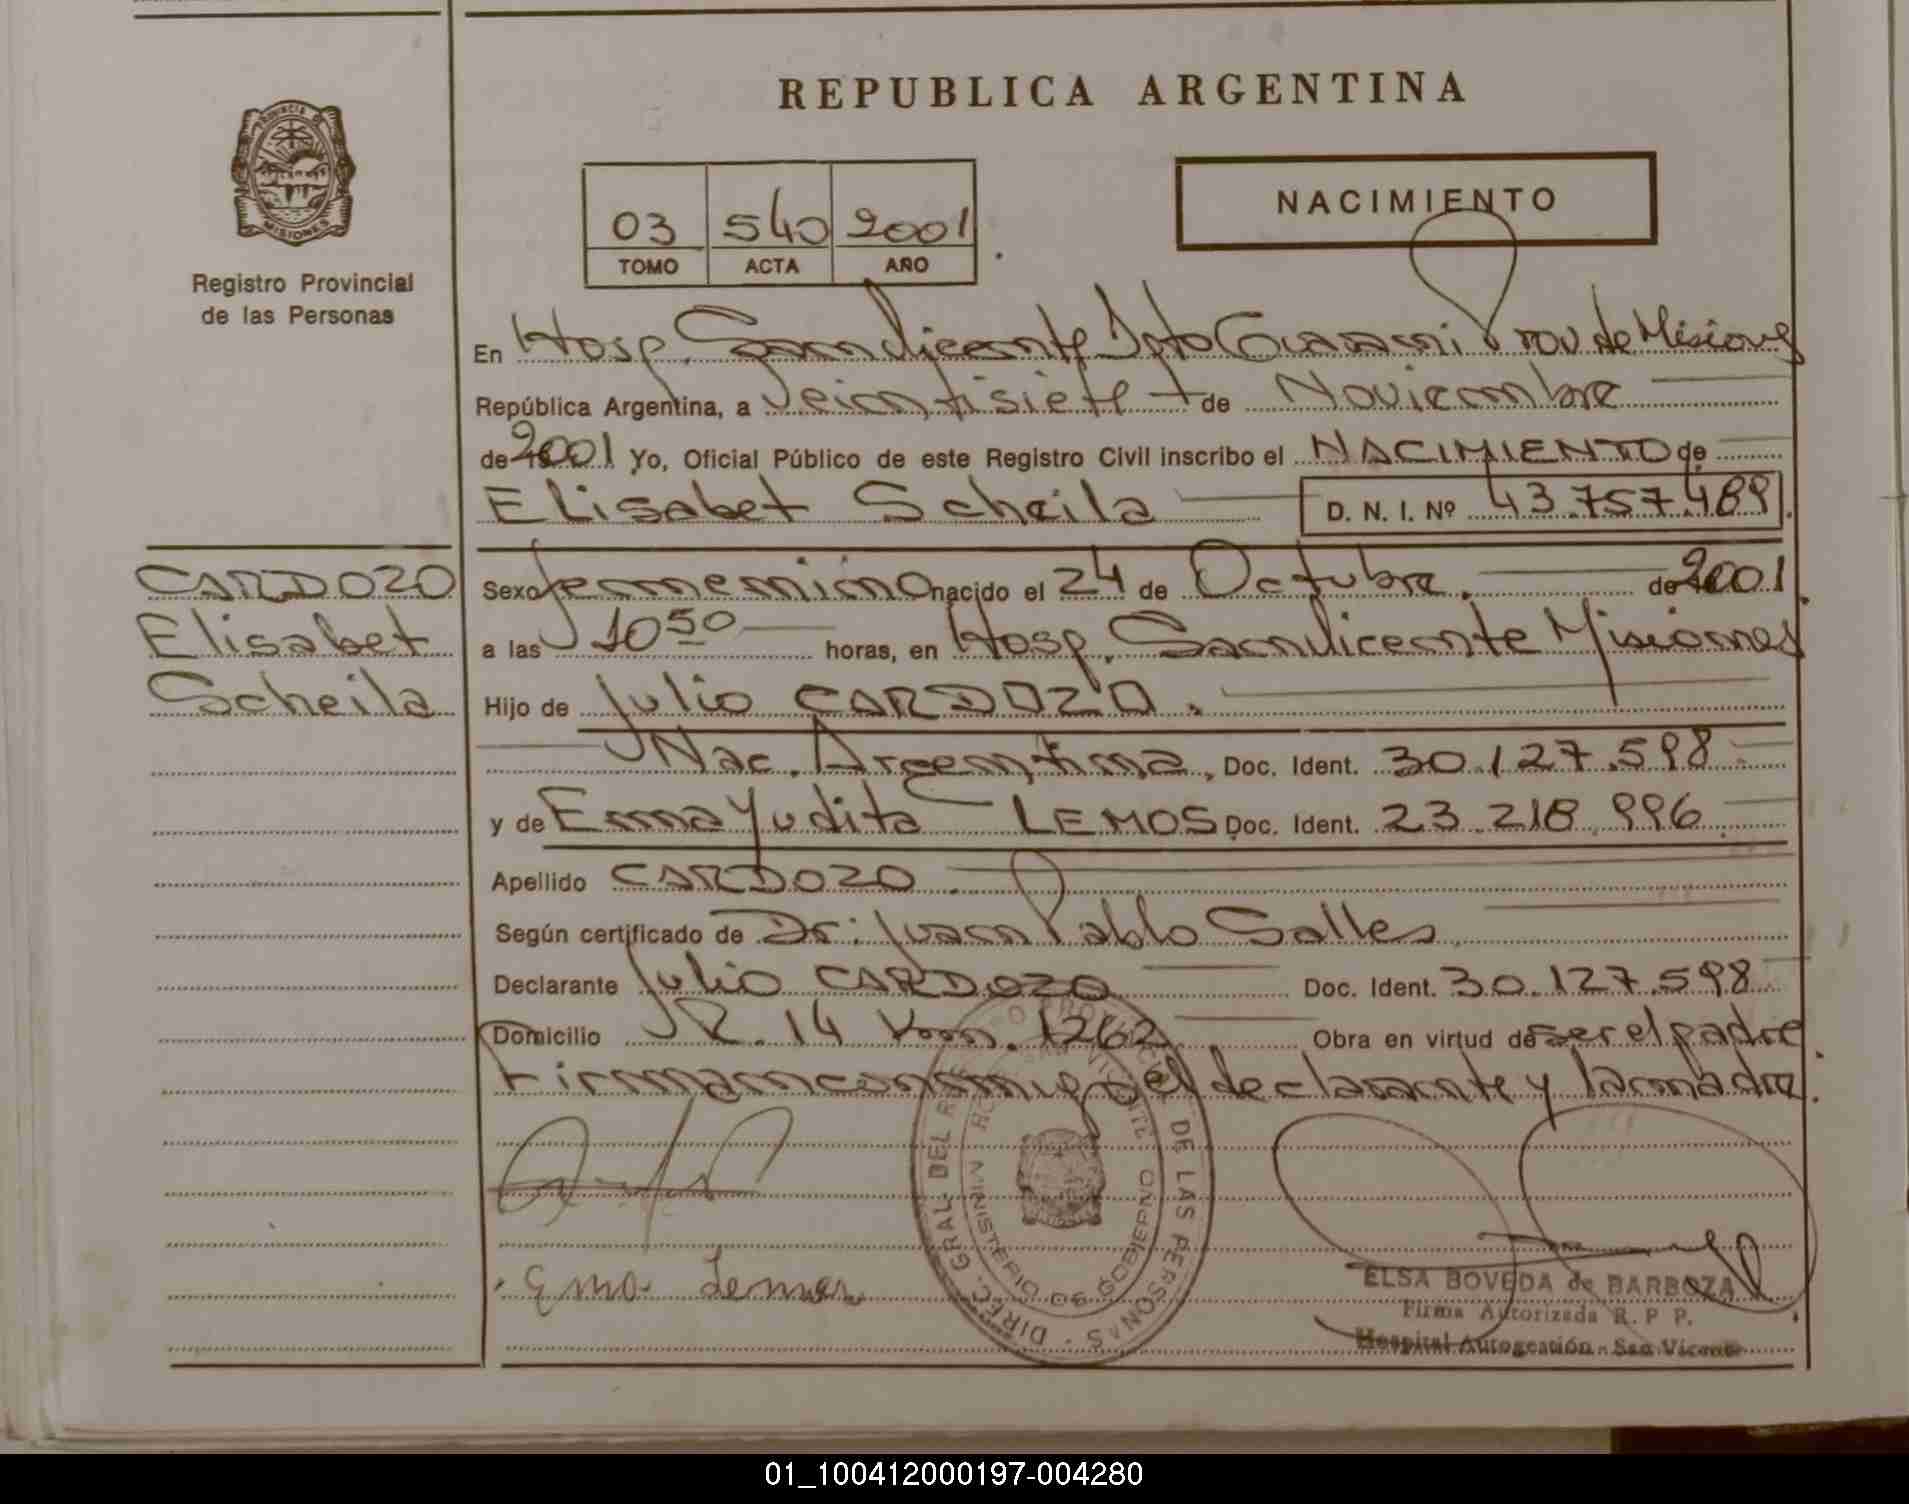 REPUBLICA ARGENTINA
PROVINCIA DE
MISIONES
Registro Provincial
de las Personas
03 540 2001
TOMO ACTA AÑO
NACIMIENTO
En Hosp. San Vicente Dpto Guarani Prov de Misiones
República Argentina, a Veintisiete de Noviembre
de 2001 Yo, Oficial Público de este Registro Civil inscribo el NACIMIENTO de
Elisabet Scheila D. N. I. Nº 43.757.489.
CARDOZO
Elisabet
Scheila
Sexo femenino nacido el 24 de Octubre. de 2001.
a las 10 50 horas, en Hosp. San Vicente Misiones
Hijo de Julio CARDOZO.
Nac. Argentina. Doc. Ident. 30.127.598.
y de Ema Yudita LEMOS Doc. Ident. 23.218.996.
Apellido CARDOZO.
Según certificado de Dr: Juan Pablo Salles.
Declarante Julio CARDOZO Doc. Ident. 30.127.598
Domicilio R. 14 Km. 1262 Obra en virtud de ser el padre.
Firman conmigo el declarante y la madre.
Ema Lemos
DIREC. GRAL. DEL REG. PROVINCIAL DE LAS PERSONAS
MINISTERIO DE GOBIERNO
ELSA BOVEDA de BARBOZA
Firma Autorizada R. P. P.
Hospital Autogestión - San Vicente
01_100412000197-004280